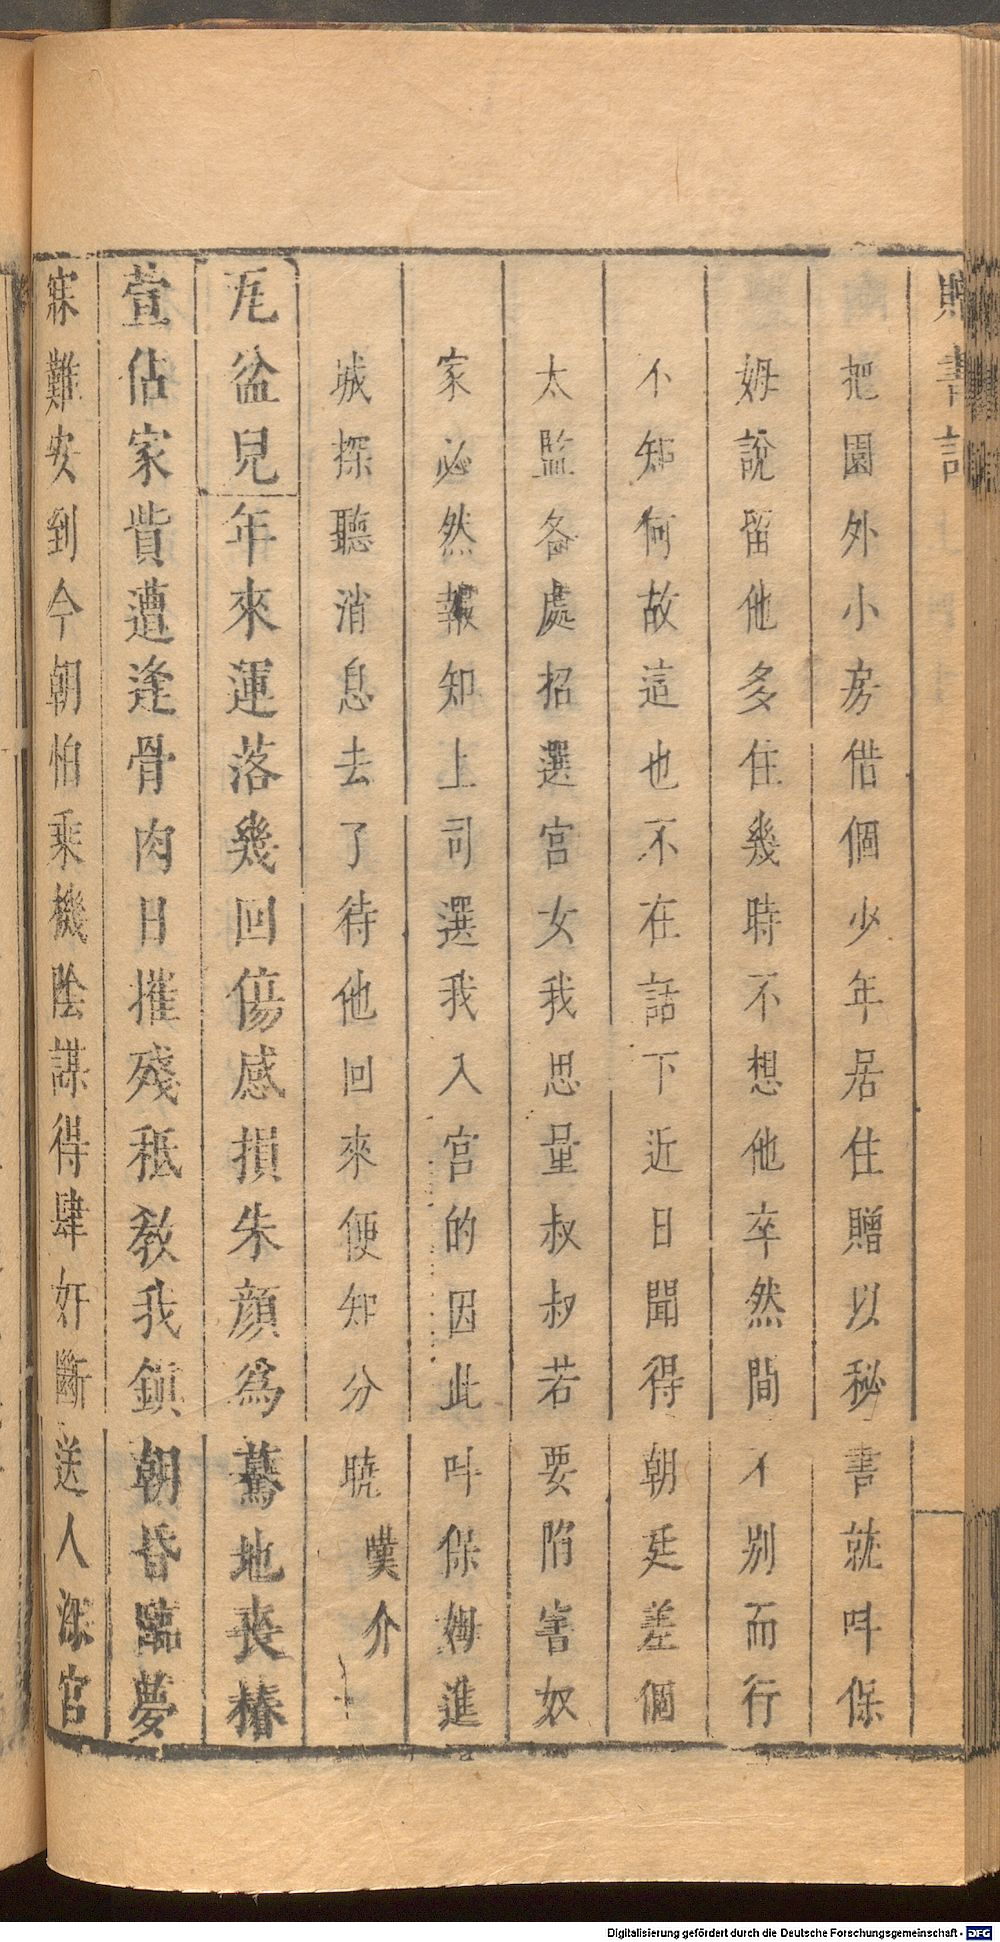 書記
把園外小房借個少年居住贈以秘書就呌保
姆說留他多住幾時不想他卒然間不別而行
不知何故這也不在話下近日聞得朝廷差個
太監各處招選宮女我思量叔叔若要陷害奴
家必然報知上司選我入宮的因此呌保姆進
城探聽消息去了待他回來便知分曉 嘆介
瓦盆兒 年來運落幾回傷感損朱顔爲驀地喪椿
萱佔家貲遭逢骨肉日摧殘秪教我鎮朝昏臨夢
寐難安到今朝怕乘機陰謀得肆奸斷送人深宮
Digitalisierung gefördert durch die Deutsche Forschungsgemeinschaft - DFG